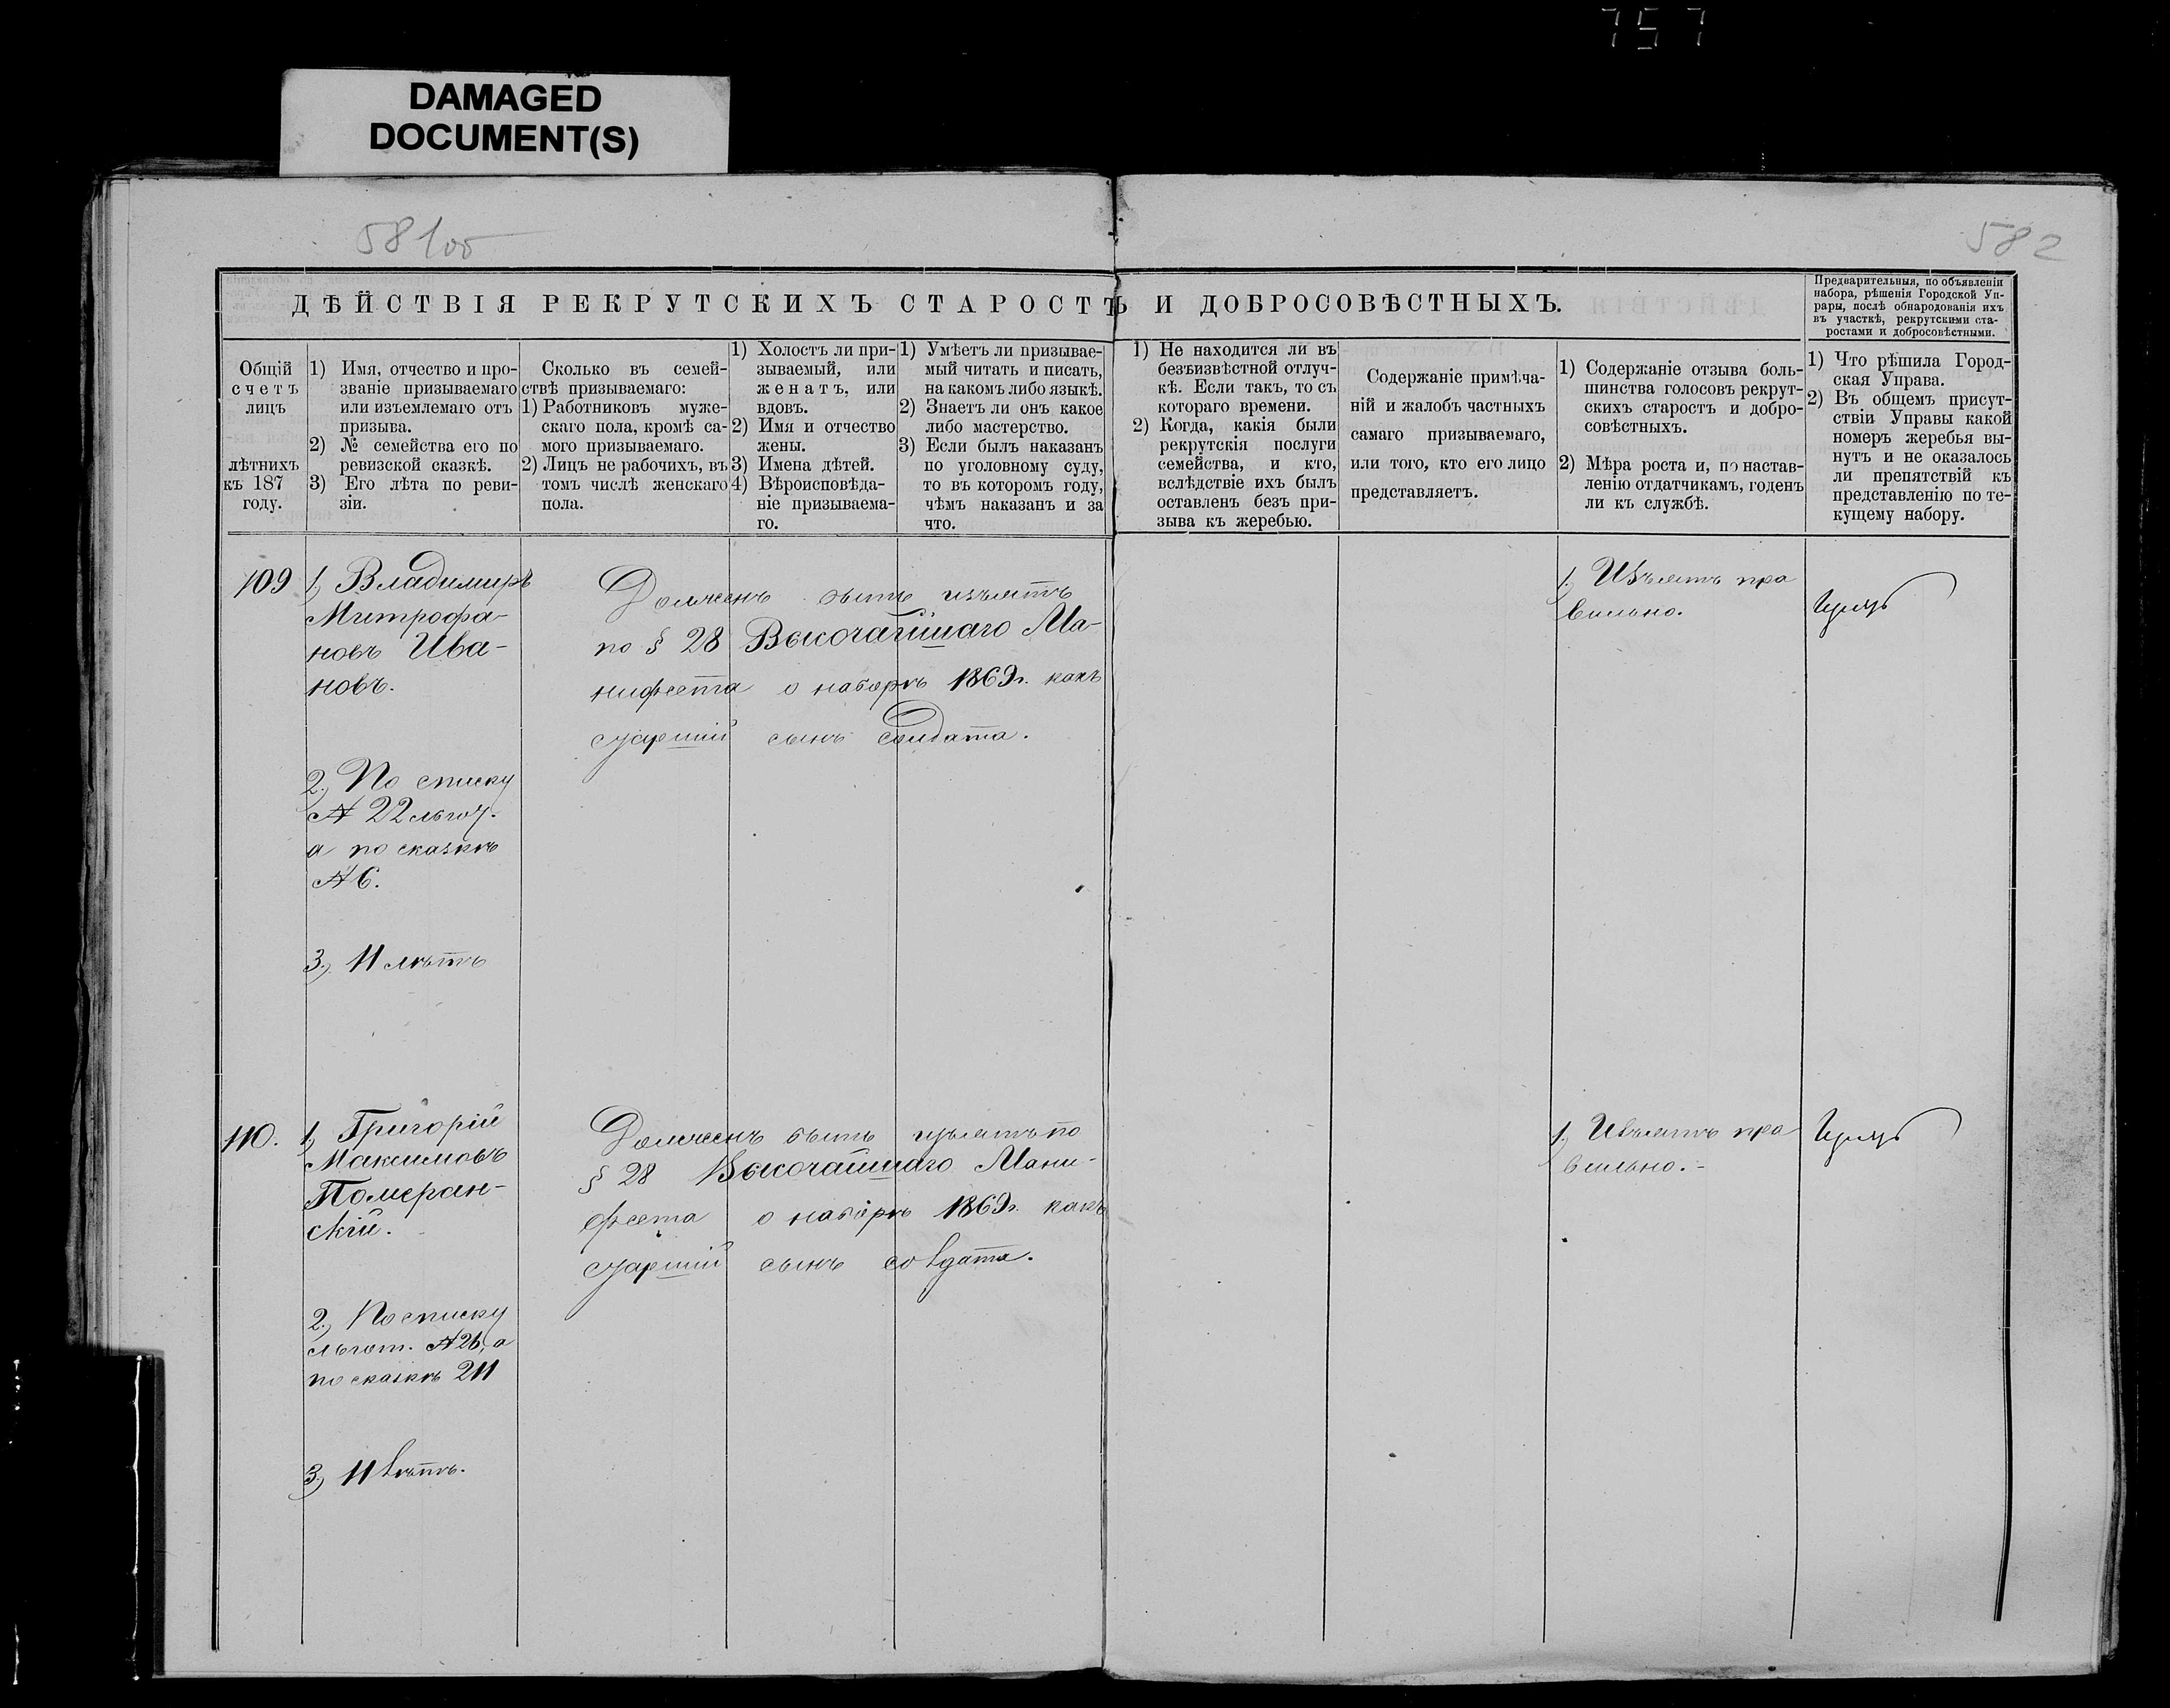 757
DAMAGED
DOCUMENT(S)
582
ДѢЙСТВІЯ РЕКРУТСКИХЪ СТАРОСТЪ И ДОБРОСОВѢСТНЫХЪ.
Предварительныя, по объявленіи
набора, рѣшенія Городской Уп-
рары, послѣ обнародованія ихъ
въ участкѣ, рекрутскими ста-
ростами и добросовѣстными.
Общій
счетъ
лицъ
лѣтнихъ
къ 187
году.
1) Имя, отчество и про-
званіе призываемаго
или изъемлемаго отъ
призыва.
2) № семейства его по
ревизской сказкѣ.
3) Его лѣта по реви-
зіи.
Сколько въ семей-
ствѣ призываемаго:
1) Работниковъ муже-
скаго пола, кромѣ са-
мого призываемаго.
2) Лицъ не рабочихъ, въ
томъ числѣ женскаго
пола.
1) Холостъ ли при-
зываемый, или
женатъ, или
вдовъ.
2) Имя и отчество
жены.
3) Имена дѣтей.
4) Вѣроисповѣда-
ніе призываема-
го.
1) Умѣетъ ли призывае-
мый читать и писать,
на какомъ либо языкѣ.
2) Знаетъ ли онъ какое
либо мастерство.
3) Если былъ наказанъ
по уголовному суду,
то въ которомъ году,
чѣмъ наказанъ и за
что.
1) Не находится ли въ
безъизвѣстной отлуч-
кѣ. Если такъ, то съ
котораго времени.
2) Когда, какія были
рекрутскія послуги
семейства, и кто,
вслѣдствіе ихъ былъ
оставленъ безъ при-
зыва къ жеребью.
Содержаніе примѣча-
ній и жалобъ частныхъ
самаго призываемаго,
или того, кто его лицо
представляетъ.
1) Содержаніе отзыва боль-
шинства голосовъ рекрут-
скихъ старостъ и добро-
совѣстныхъ.
2) Мѣра роста и, по настав-
ленію отдатчикамъ, годенъ
ли къ службѣ.
1) Что рѣшила Город-
ская Управа.
2) Въ общемъ присут-
ствіи Управы какой
номеръ жеребья вы-
нутъ и не оказалось
ли препятствій къ
представленію по те-
кущему набору.
109
1, Владимиръ
Митрофа-
новъ Ива-
новъ.
2, По списку
№ 22 льгот.
а по сказкѣ
№ 6.
3, 11 лѣтъ
Долженъ быть изъятъ
по § 28 Высочайшаго Ма-
нифеста о наборѣ 1869 г. какъ
старшій сынъ солдата.
1, Изъятъ пра
вильно.
110.
1, Григорій
Максимовъ
Померан-
скій.
2, По списку
льгот. № 26, а
по сказкѣ 211
3, 11 лѣтъ.
Долженъ быть изъятъ по
§ 28 Высочайшаго Мани-
феста о наборѣ 1869 г. какъ
старшій сынъ солдата.
1, Изъятъ пра
вильно.-